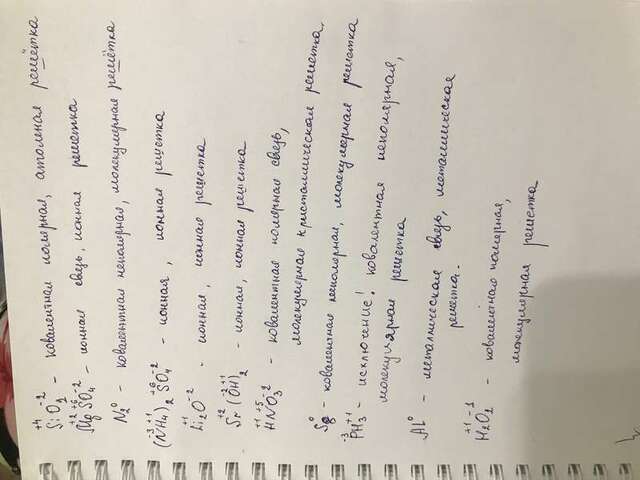 +4 -2
SiO2 - ковалентная полярная, атомная решётка
+2 +6 -2
MgSO4 - ионная связь, ионная решетка
N2⁰ - ковалентная неполярная, молекулярная решётка
-3 +1 +6 -2
(NH4)2SO4 - ионная, ионная решетка
+1
Li2O⁻² - ионная, ионная решетка
+2 -2 +1
Sr(OH)2 - ионная, ионная решетка
+1 +5 -2
HNO3 - ковалентная полярная связь,
молекулярная кристаллическая решетка
S8⁰ - ковалентная неполярная, молекулярная решетка
-3 +1
PH3 - исключение! ковалентная неполярная,
молекулярная решетка
Al⁰ - металлическая связь, металлическая
решетка.
+1 -1
H2O2 - ковалентная полярная,
молекулярная решетка